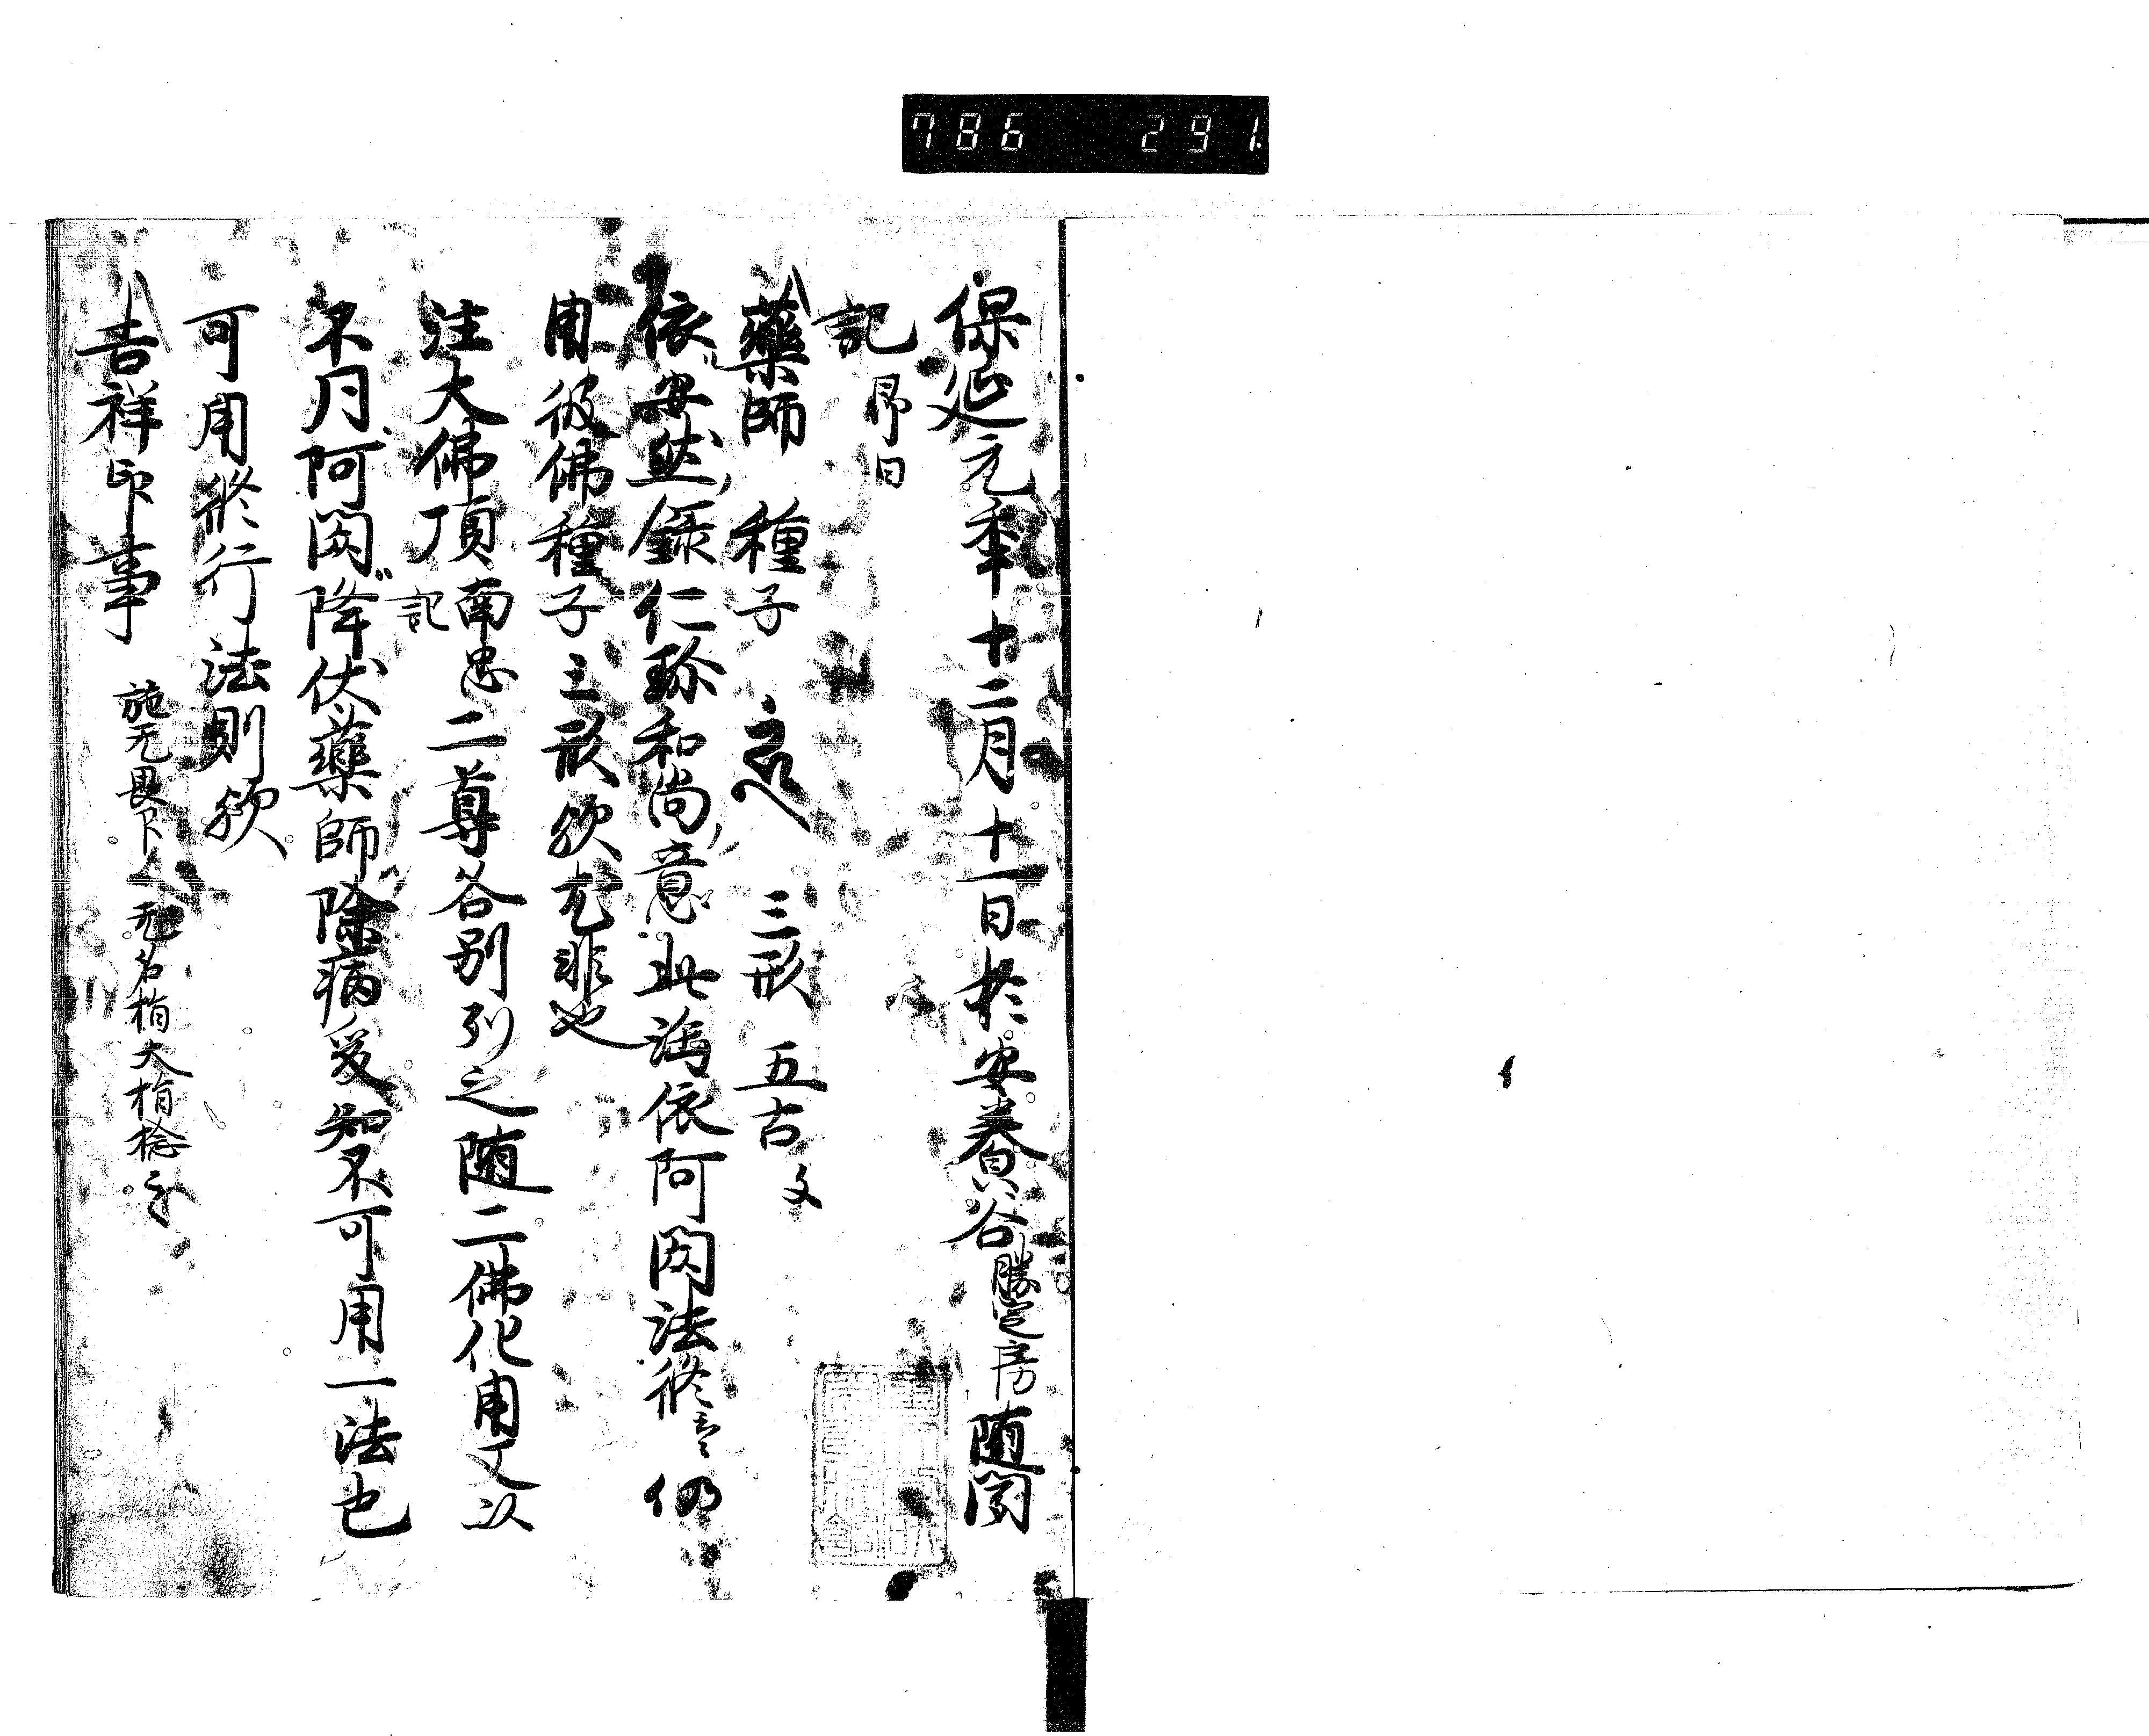 786 291
保延元年十二月十一日於安養谷勝定房随聞
記 昴日
藥師 種子 三形 五古 文
依安然録仁珎和尚意此謂依阿閦法修云云仍
用彼佛種子三形欤尤非也
注大佛頂南忠記二尊各別列之随二佛化用又以
不同阿閦降伏藥師除病爰知不可用一法也
可用修行法則欤
吉祥印事 施无畏下之无名指大指捻云云